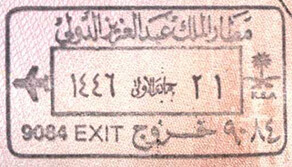 مطار الملك عبدالعزيز الدولي
٢١ جمادى الأولى ١٤٤٦
KSA
9084 EXIT خروج ٩٠٨٤